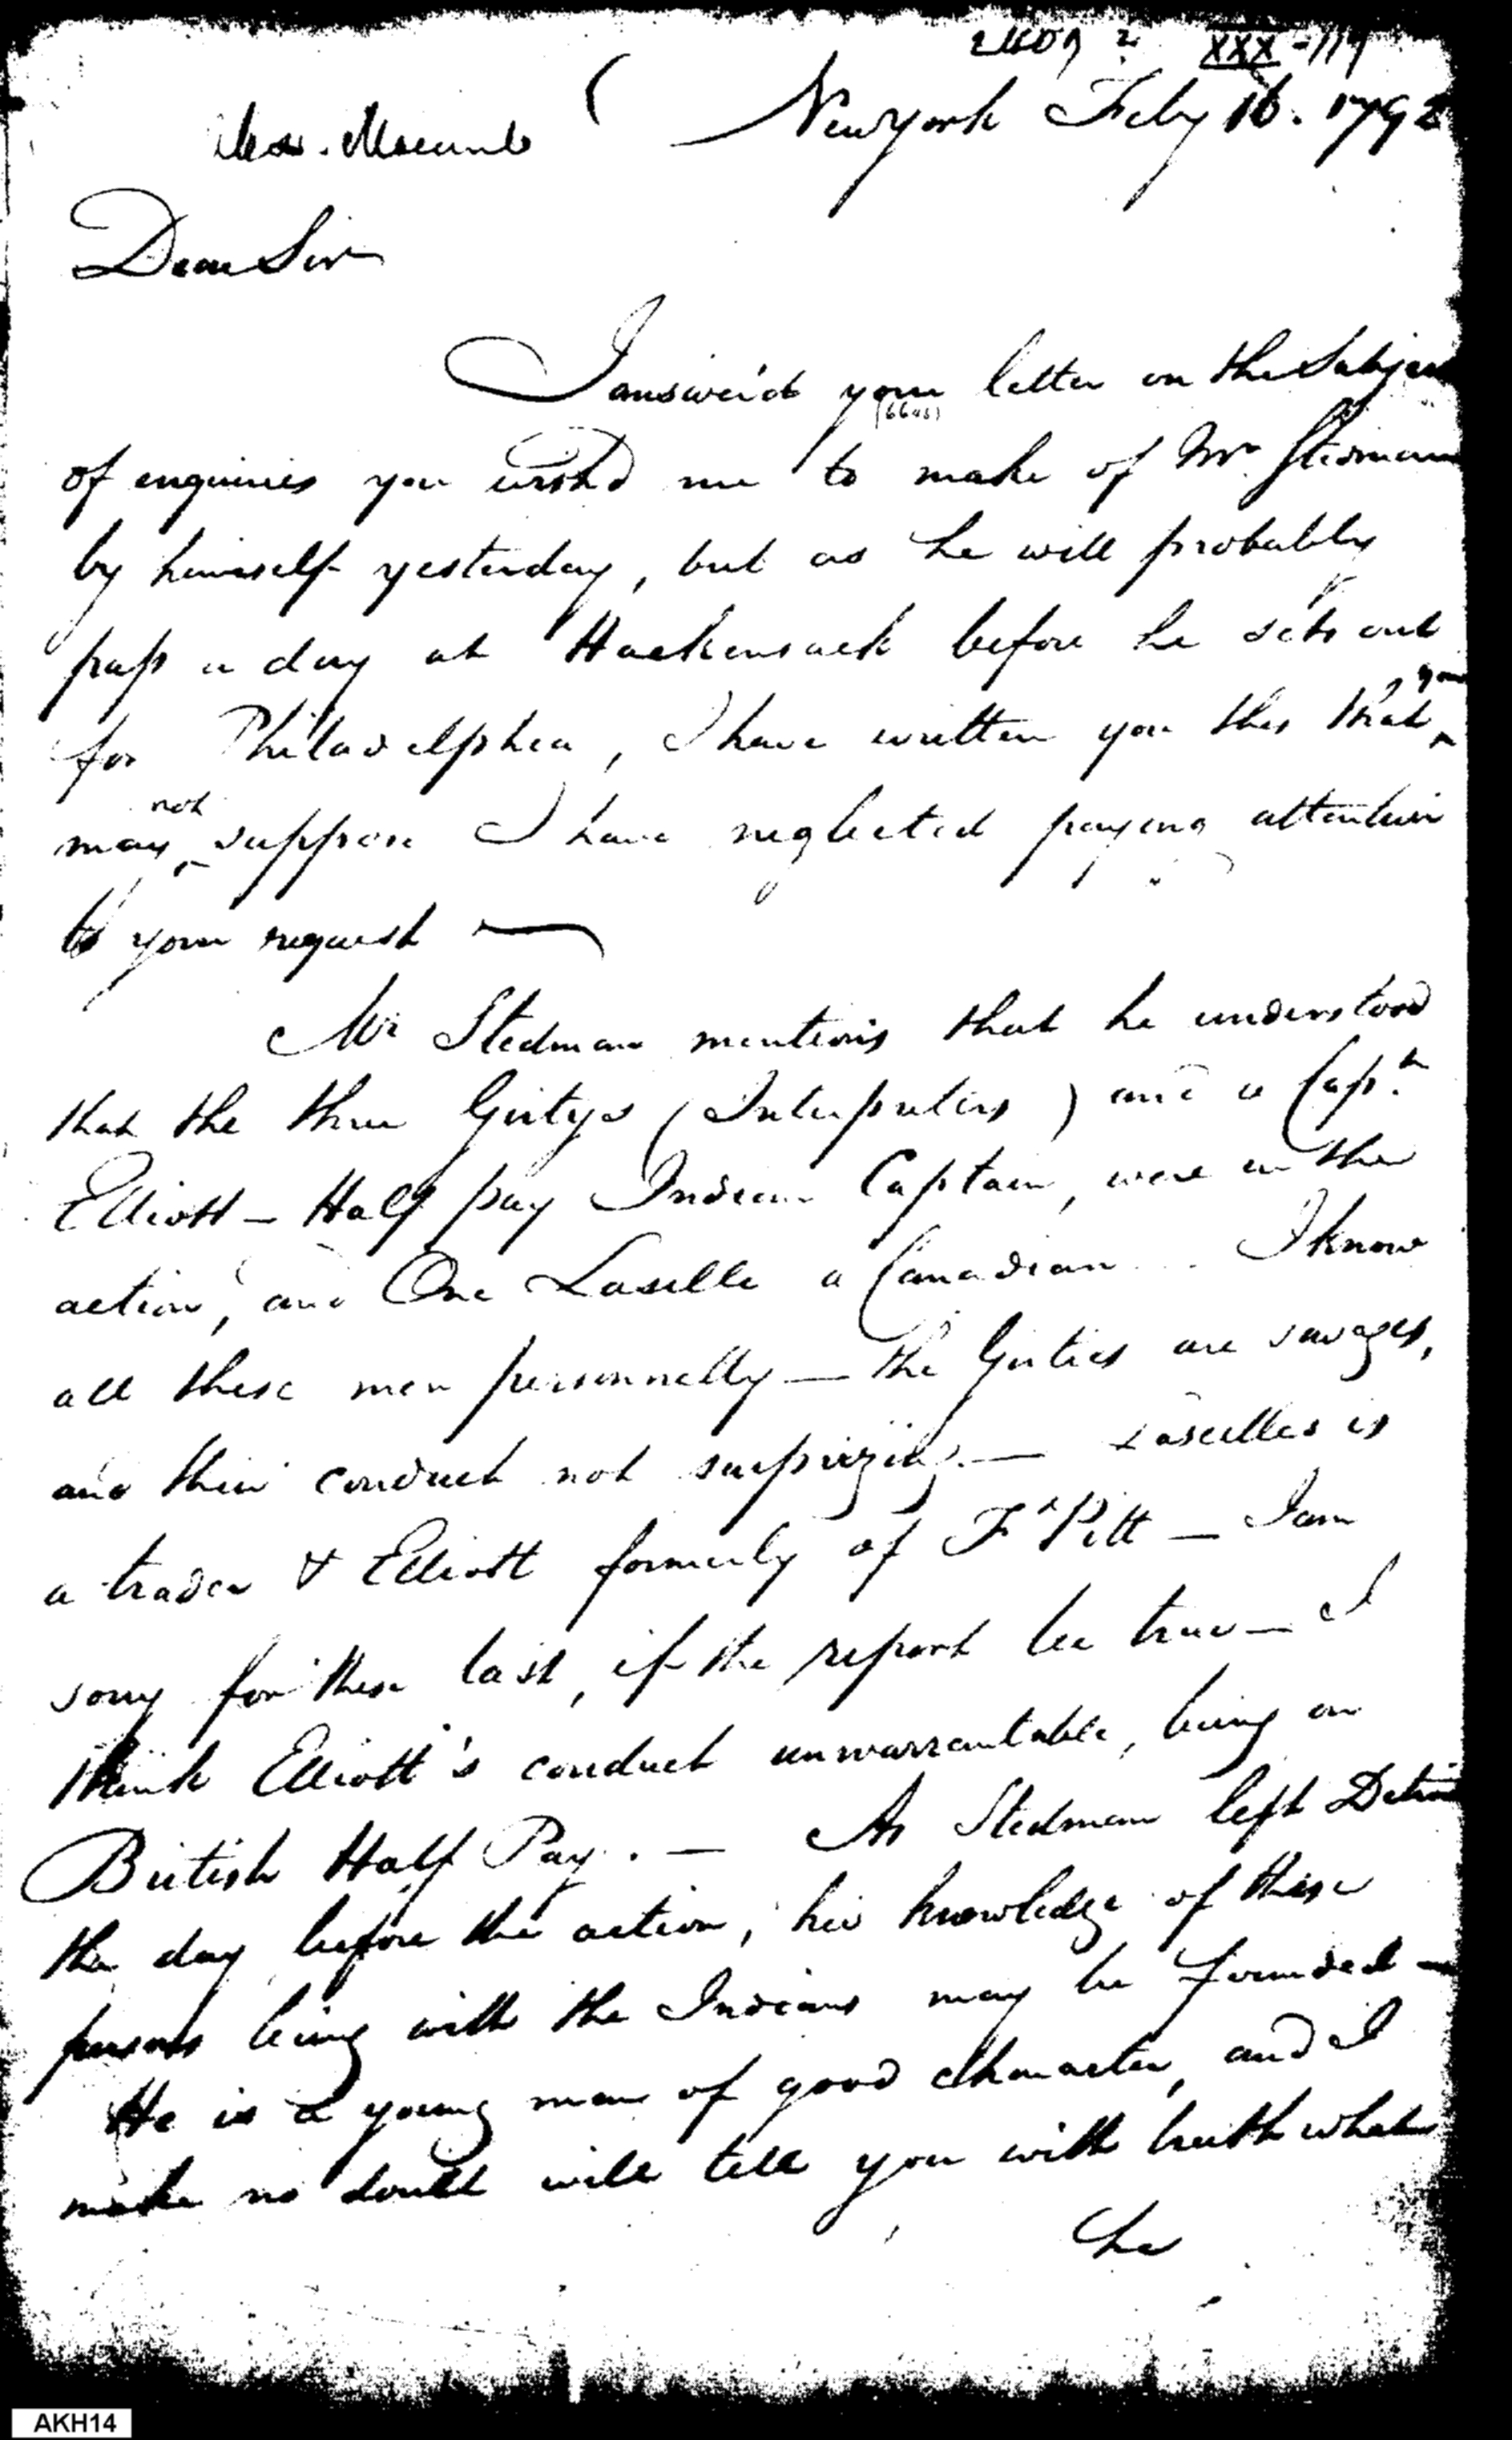 XXX-117
New York Feby 16. 1792
Alex. Macomb
Dear Sir
I answer'd your letter on the Subject
of enquiries you wish'd me to make of Mr. Stedman
by himself yesterday, but as he will probably
pass a day at Hackensack before he sets out
for Philadelphia, I have written you this that you
may not suppose I have neglected paying attention
to your request —
Mr Stedman mentions that he understood
that the three Girtys (Interpreters) and a Capn
Elliott - Half pay Indian Captain, were in the
action, and One Laselle a Canadian. I know
all these men personnelly — the Girties are savages,
and their conduct not surprizing. — Laselles is
a trader & Elliott formerly of Ft Pitt — I am
sorry for these last, if the report be true — I
think Elliott's conduct unwarrantable, being on
British Half Pay. — As Stedman left Detroit
the day before the action, his knowledge of these
persons being with the Indians may be founded —
He is a young man of good character, and I
make no doubt will tell you with truth what
he
AKH14